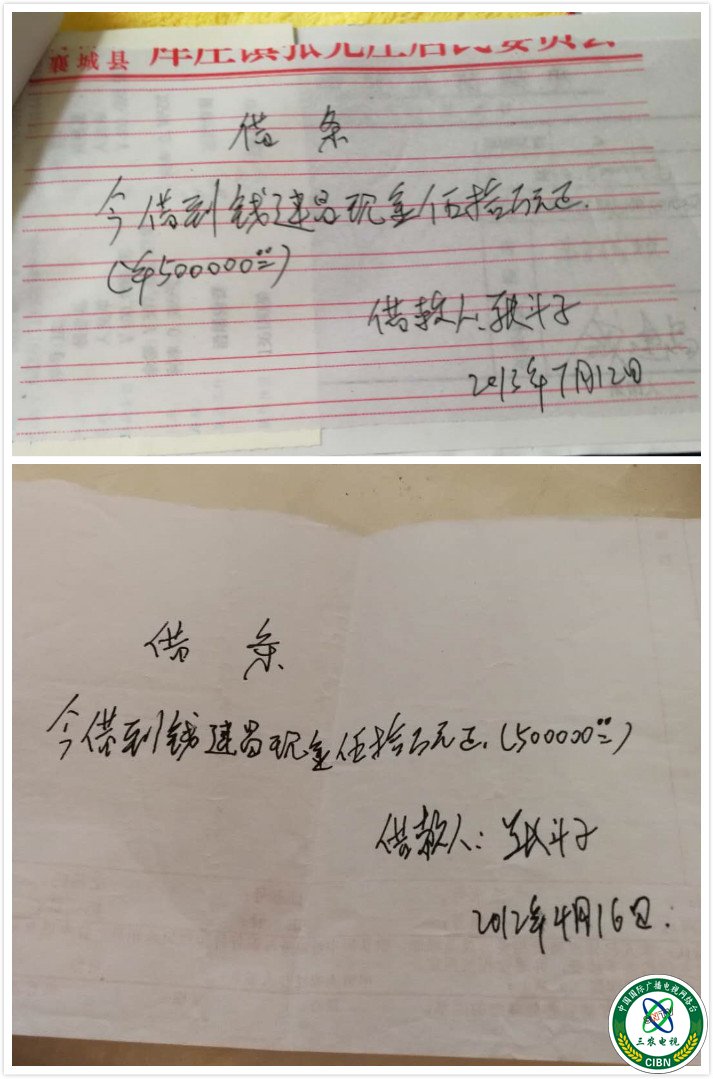 襄城县 库庄镇张元庄居民委员会
借条
今借到钱建昌现金伍拾万元正.
(¥500000.00)
借款人:张斗子
2013年7月12日
借条
今借到钱建昌现金伍拾万元正.(500000.00)
借款人:张斗子
2012年4月16日.
中国国际广播电视网络台
CNTV
三农电视
CIBN